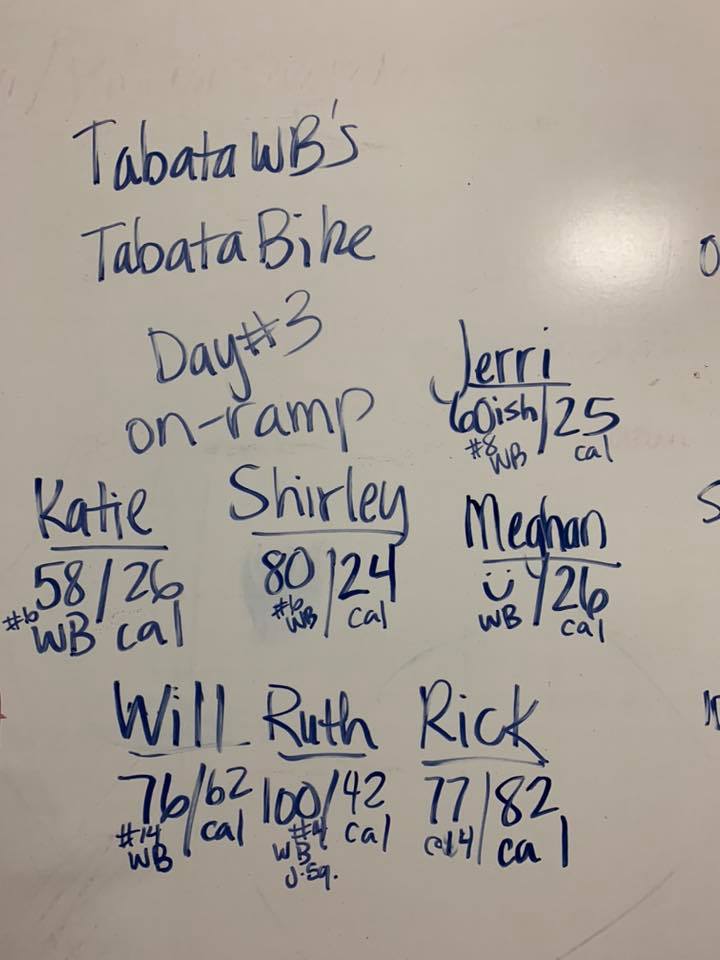 Tabata WB's
Tabata Bike
Day #3
on-ramp
Jerri
60ish/25
#8 WB cal
Katie
58/26
#6 WB cal
Shirley
80/24
#6 WB cal
Meghan
ü/26
WB cal
Will
76/62
#14 WB cal
Ruth
100/42
#4 WB cal
J. Sq.
Rick
77/82
@14 cal